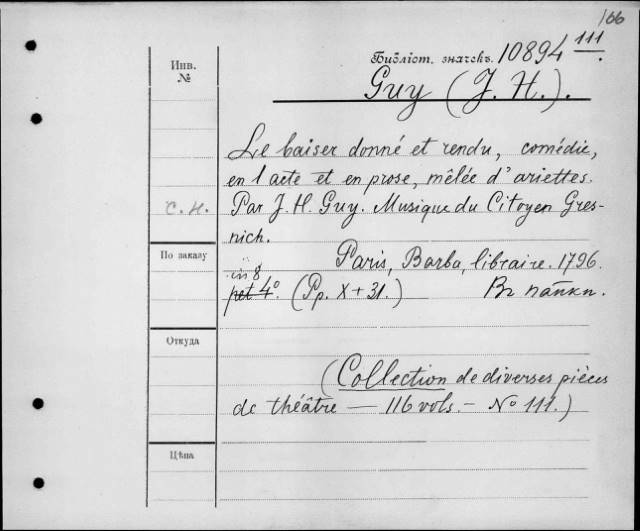 166
Инв.
№
Библіот. значекъ. 10894 111.
Guy (J. H.).
Le baiser donné et rendu, comédie,
en 1 acte et en prose, mêlée d'ariettes.
C. H. Par J. H. Guy. Musique du Citoyen Gres-
nich.
По заказу
Paris, Barba, libraire. 1796.
in 8
pet 4º. (Pp. X + 31.) Въ папкѣ.
Откуда
(Collection de diverses pièces
de théâtre — 116 vols. — Nº 111.)
Цѣна